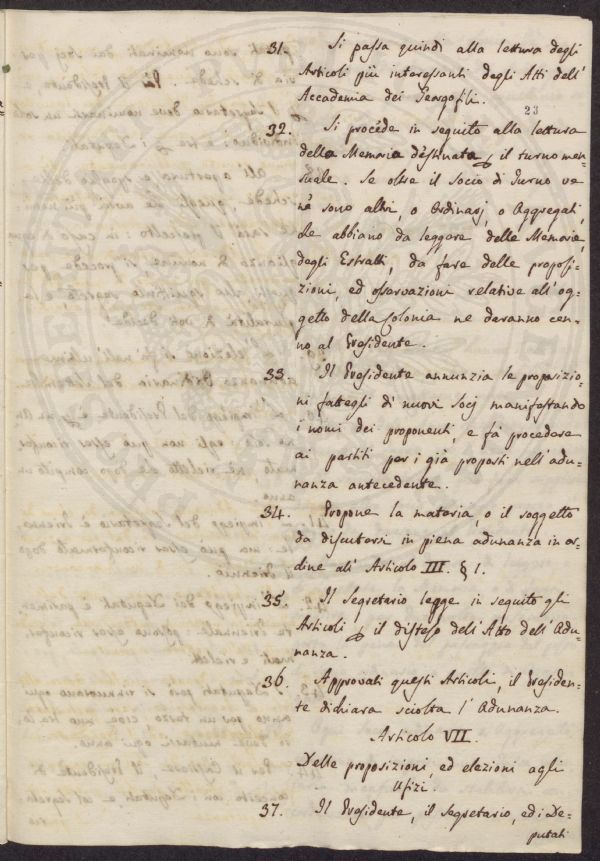 31. Si passa quindi alla lettura degli
Articoli più interessanti degli Atti dell'
Accademia dei Georgofili.
23
32. Si procede in seguito alla lettura
della Memoria destinata p il turno men=
suale. Se oltre il Socio di Turno ve
ne sono altri, o Ordinarj, o Aggregati,
che abbiano da leggere delle Memorie,
degli Estratti, da fare delle proposi=
zioni, ed osservazioni relative all'og=
getto della Colonia ne daranno cen=
no al Presidente.
33. Il Presidente annunzia le proposizio=
ni fattegli di nuovi Socj manifestando
i nomi dei proponenti, e fà procedere
ai partiti per i già proposti nell'adu=
nanza antecedente.
34. Propone la materia, o il soggetto
da discutersi in piena adunanza in or=
dine all' Articolo III. § 1.
35. Il Segretario legge in seguito gli
Articoli p il disteso dell'Atto dell'Adu=
nanza.
36. Approvati questi Articoli, il Presiden=
te dichiara sciolta l'Adunanza.
Articolo VII.
Delle proposizioni, ed elezioni agli
Ufizi.
37. Il Presidente, il Segretario, ed i De=
putati